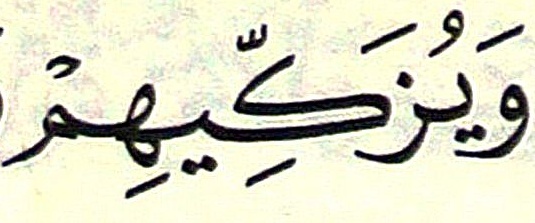 وَيُزَكِّيهِمْ